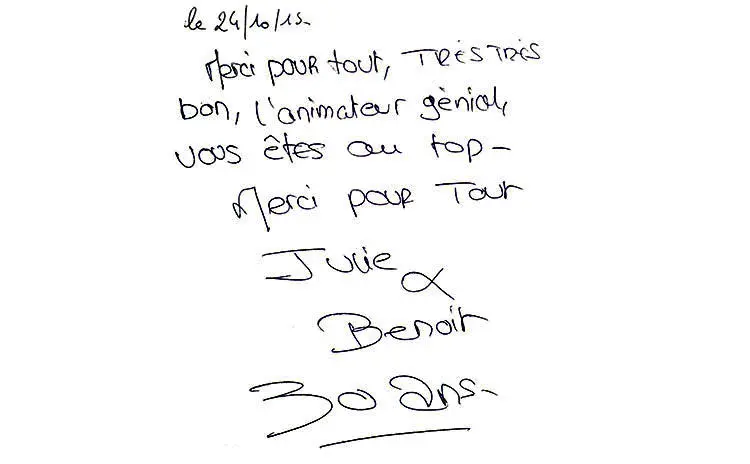 le 24/10/15-
Merci pour tout, TRÈS TRÈS
bon, l'animateur gènial,
vous êtes au top-
Merci pour Tout
Julie &
Benoit
30 ans-